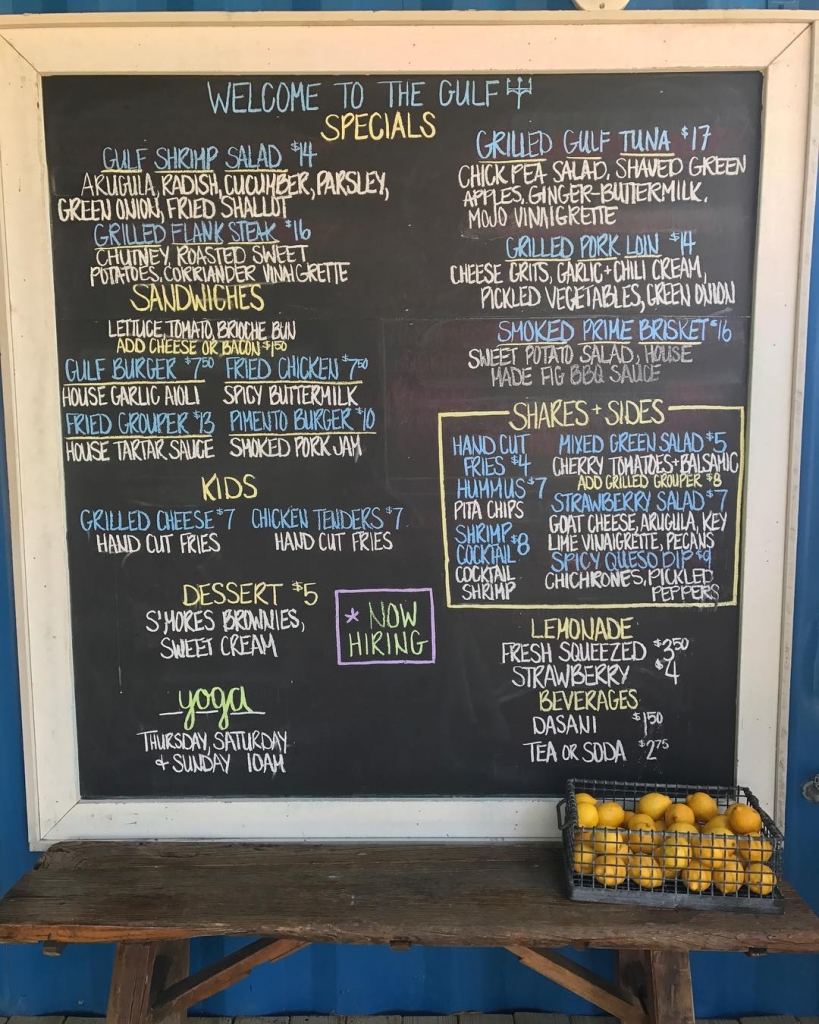 WELCOME TO THE GULF
SPECIALS
GULF SHRIMP SALAD $14
ARUGULA, RADISH, CUCUMBER, PARSLEY,
GREEN ONION, FRIED SHALLOT
GRILLED FLANK STEAK $16
CHUTNEY, ROASTED SWEET
POTATOES, CORRIANDER VINAIGRETTE
GRILLED GULF TUNA $17
CHICK PEA SALAD, SHAVED GREEN
APPLES, GINGER-BUTTERMILK,
MOJO VINAIGRETTE
GRILLED PORK LOIN $14
CHEESE GRITS, GARLIC + CHILI CREAM,
PICKLED VEGETABLES, GREEN ONION
SMOKED PRIME BRISKET $16
SWEET POTATO SALAD, HOUSE
MADE FIG BBQ SAUCE
SANDWICHES
LETTUCE, TOMATO, BRIOCHE BUN
ADD CHEESE OR BACON $1.50
GULF BURGER $7.50 FRIED CHICKEN $7.50
HOUSE GARLIC AIOLI SPICY BUTTERMILK
FRIED GROUPER $13 PIMENTO BURGER $10
HOUSE TARTAR SAUCE SMOKED PORK JAM
KIDS
GRILLED CHEESE $7 CHICKEN TENDERS $7
HAND CUT FRIES HAND CUT FRIES
SHARES + SIDES
HAND CUT
FRIES $4
HUMMUS $7
PITA CHIPS
SHRIMP
COCKTAIL $8
COCKTAIL
SHRIMP
MIXED GREEN SALAD $5
CHERRY TOMATOES + BALSAMIC
ADD GRILLED GROUPER $8
STRAWBERRY SALAD $7
GOAT CHEESE, ARUGULA, KEY
LIME VINAIGRETTE, PECANS
SPICY QUESO DIP $9
CHICHRONES, PICKLED
PEPPERS
DESSERT $5
S'MORES BROWNIES,
SWEET CREAM
* NOW
HIRING
LEMONADE
FRESH SQUEEZED $3.50
STRAWBERRY $4
BEVERAGES
DASANI $1.50
TEA OR SODA $2.75
yoga
THURSDAY, SATURDAY
+ SUNDAY 10AM